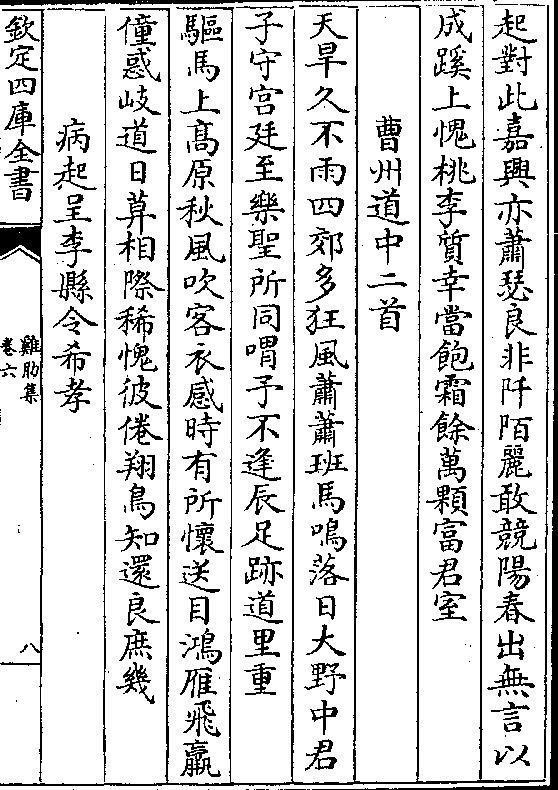 起對此嘉興亦蕭瑟良非阡陌麗敢競陽春出無言以
成蹊上愧桃李質幸當飽霜餘萬顆富君室
曹州道中二首
天旱久不雨四郊多狂風蕭蕭班馬鳴落日大野中君
子守宫廷至樂聖所同喟予不逢辰足跡道里重
驅馬上髙原秋風吹客衣感時有所懷送目鴻雁飛羸
僮惑岐道日草相際稀愧彼倦翔鳥知還良庶幾
病起呈李縣令希孝
欽定四庫全書
雞肋集
卷六
八